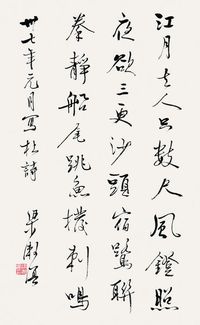 江月去人只數尺風鐙照
夜欲三更沙頭宿鷺聯
拳靜船尾跳魚撥刺鳴
卅七年元月寫杜詩 梁漱溟